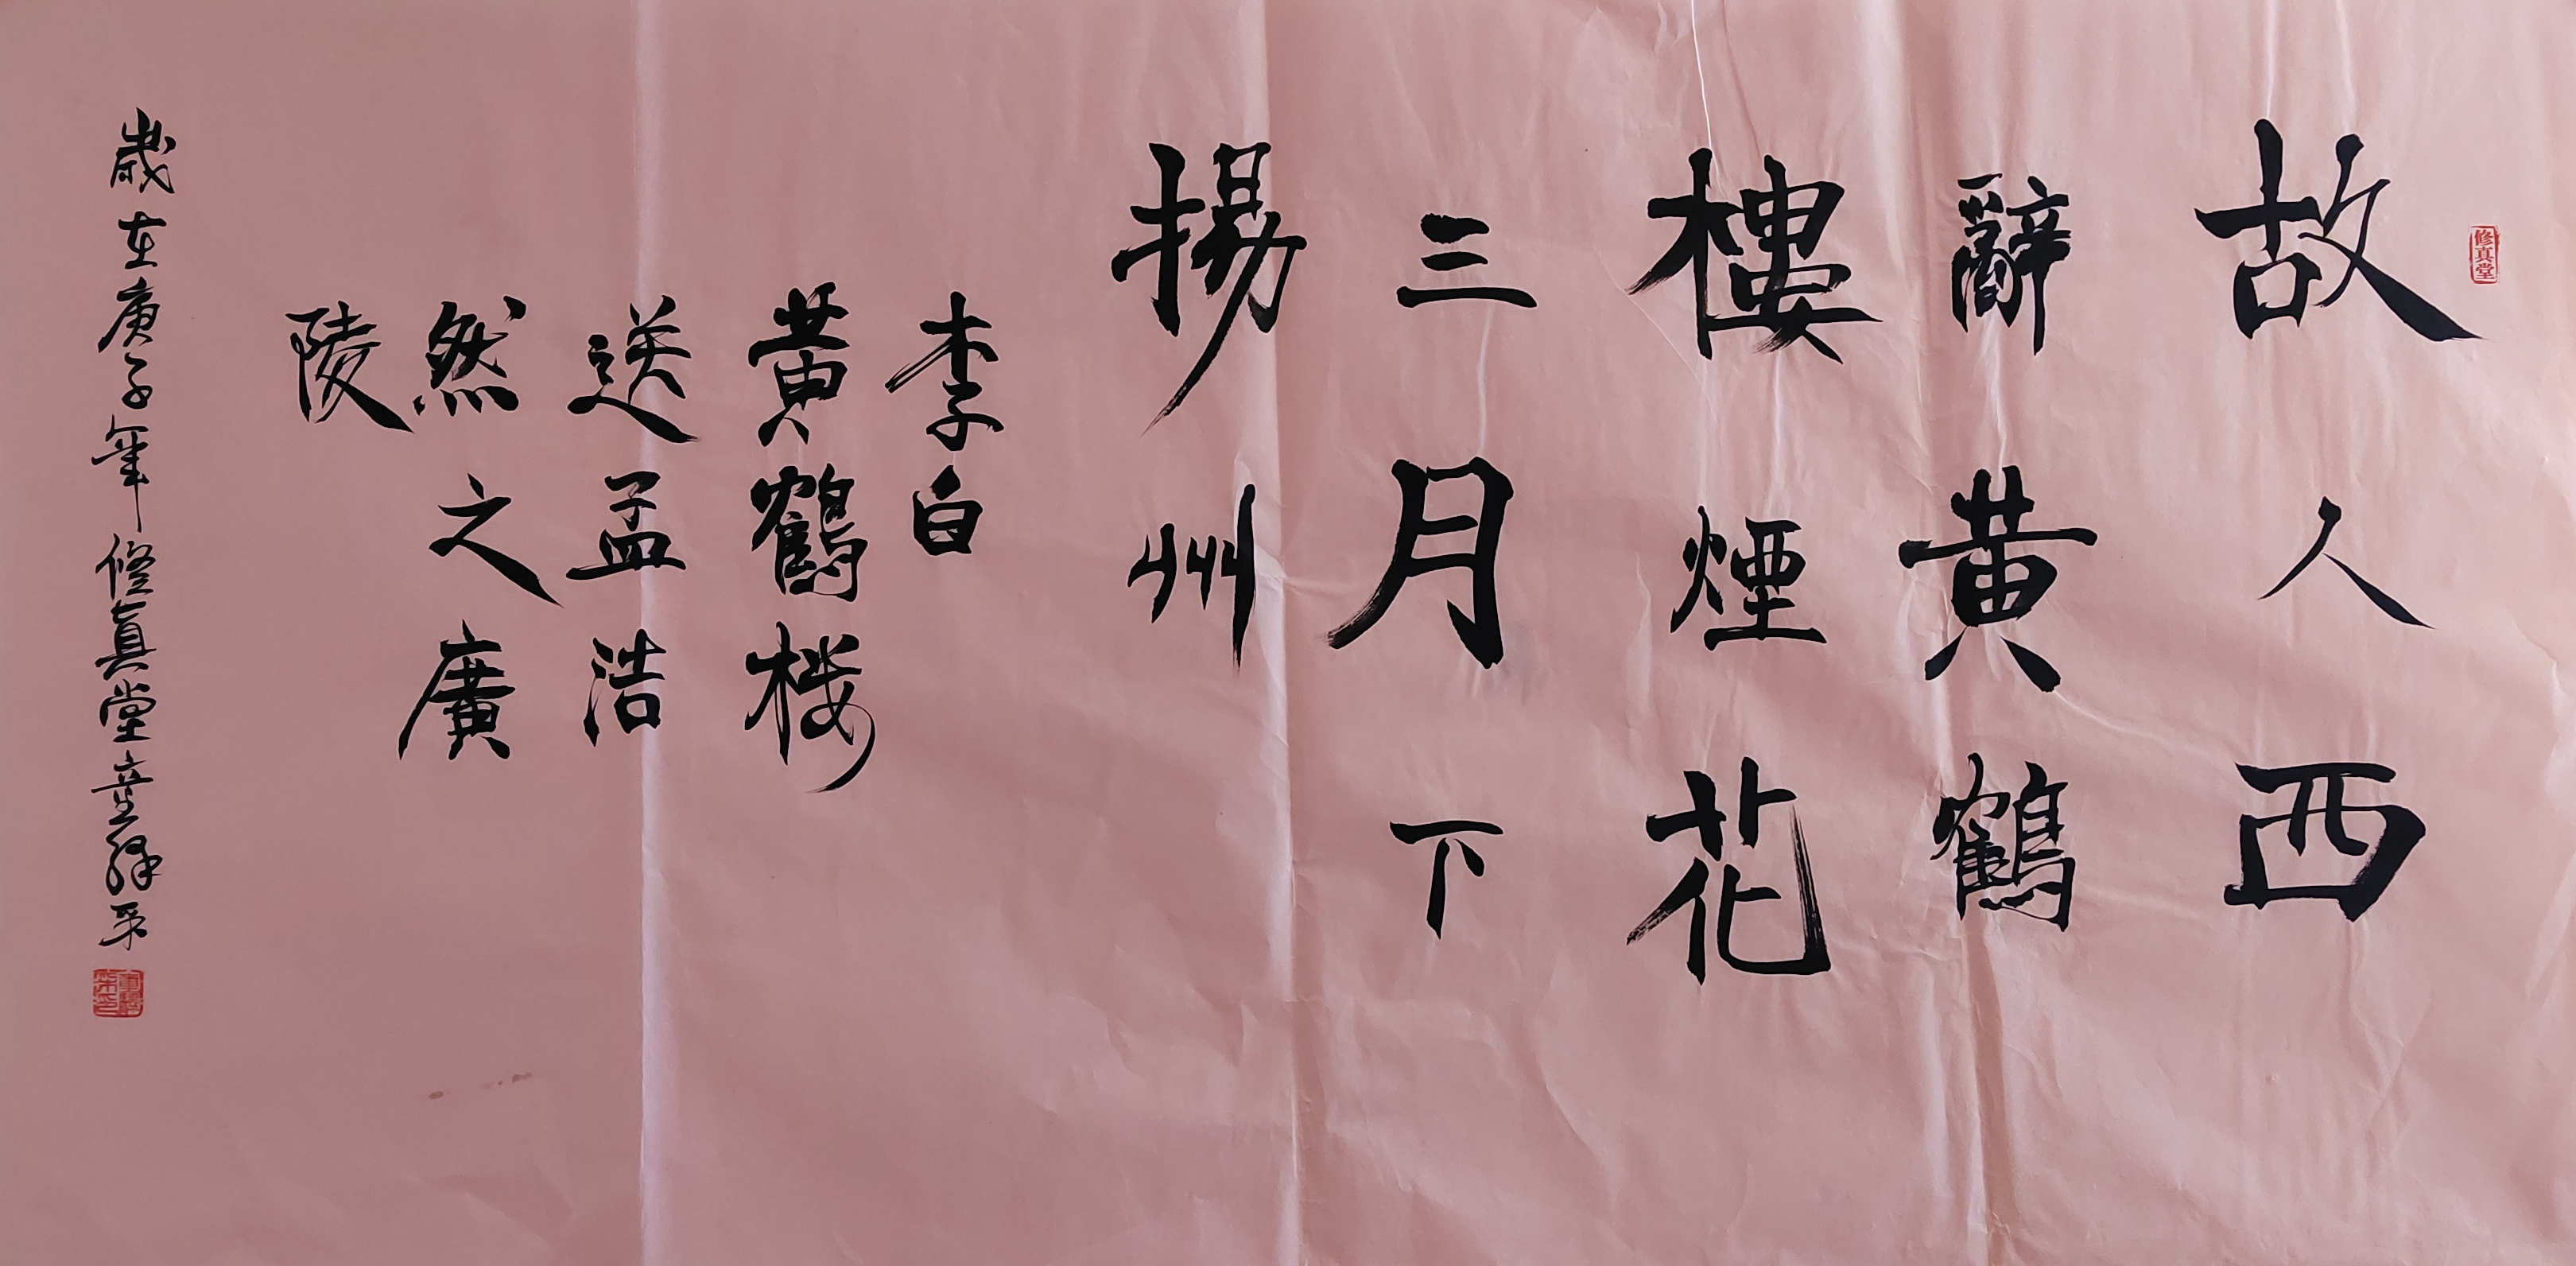 修真堂
故人西
辭黄鶴
樓煙花
三月下
揚州
李白
黄鶴楼
送孟浩
然之廣
陵
歲在庚子年修真堂